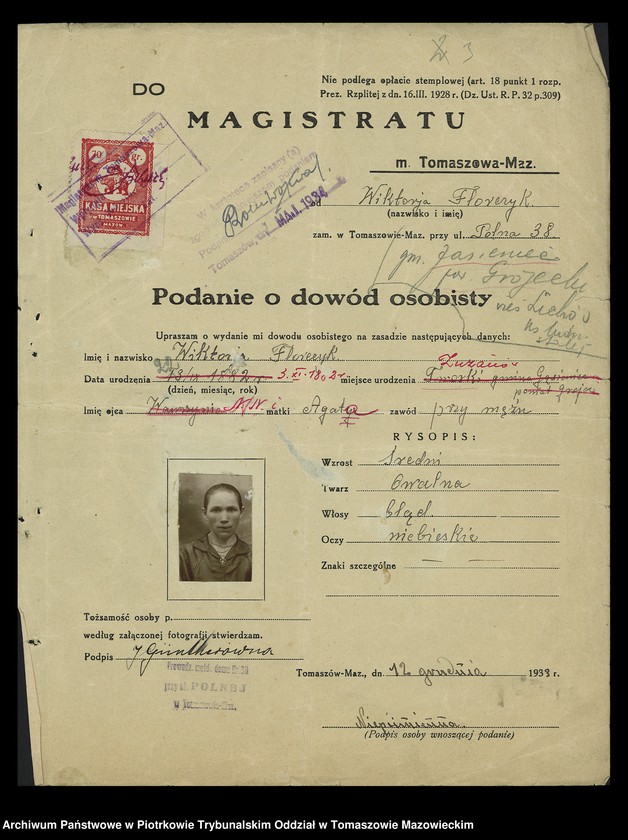 3
Nie podlega opłacie stemplowej (art. 18 punkt 1 rozp.
Prez. Rzplitej z dn. 16.III. 1928 r. (Dz. Ust. R. P. 32 p.309)
DO
MAGISTRATU
m. Tomaszowa-Maz.
KASA MIEJSKA
W TOMASZOWIE
MAZOW.
Tomaszów, d. MAJ. 1934
Wiktorja Florczyk
(nazwisko i imię)
zam. w Tomaszowie-Maz. przy ul. Polna 38
gm. Jasieniec
pow. Grójecki
Podanie o dowód osobisty
Upraszam o wydanie mi dowodu osobistego na zasadzie następujących danych:
Imię i nazwisko Wiktorja Florczyk
Data urodzenia miejsce urodzenia
(dzień, miesiąc, rok)
Imię ojca N/N. i matki Agata zawód przy mężu
RYSOPIS:
Wzrost Średni
Twarz Owalna
Włosy bląd.
Oczy niebieskie
Znaki szczególne — —
Tożsamość osoby p.
według załączonej fotografji stwierdzam.
Podpis J Güntherówna
Prowadz. meld. domu № 38
przy ul. POLNEJ
w Tomaszowie-Maz.
Tomaszów-Maz., dn. 12 grudnia 1933 r.
Niepiśmienna
(Podpis osoby wnoszącej podanie)
Archiwum Państwowe w Piotrkowie Trybunalskim Oddział w Tomaszowie Mazowieckim